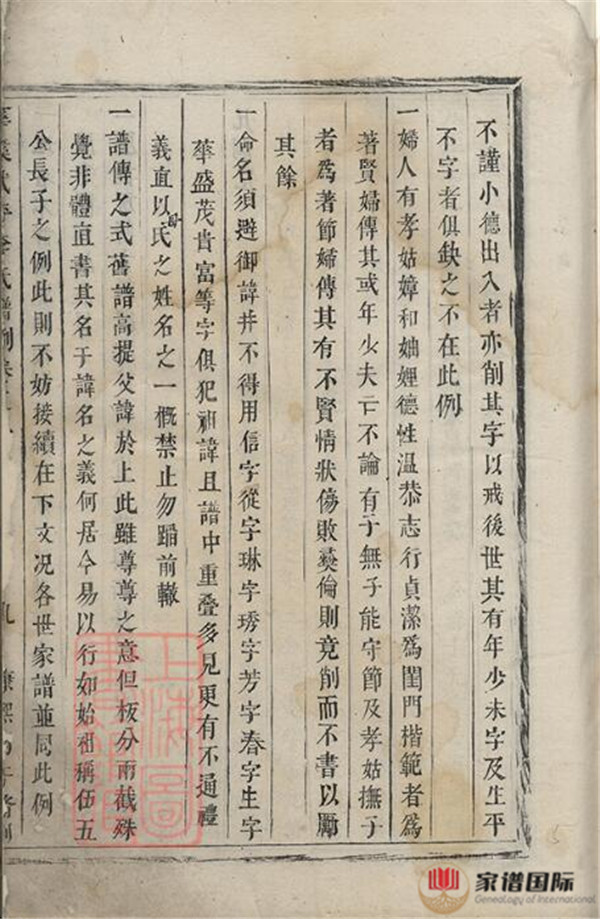 不謹小德出入者亦削其字以戒後世其有年少未字及生平
不字者俱缺之不在此例
一婦人有孝姑嫜和妯娌德性温恭志行貞潔爲閨門楷範者爲
著賢婦傳其或年少夫亡不論有子無子能守節及孝姑撫子
者爲著節婦傳其有不賢情狀傷敗彝倫則竟削而不書以勵
其餘
一命名須避御諱并不得用信字從字琳字琇字芳字春字生字
華盛茂貴富等字俱犯祖諱且譜中重叠多見更有不通禮
義直以氏之姓名之一慨禁止勿蹈前轍
一譜傳之式舊譜高提父諱於上此雖尊尊之意但板分兩截殊
覺非體直書其名于諱名之義何居今易以行如始祖稱伍五
公長子之例此則不妨接續在下文况各世家譜並同此例
李氏譜例卷
九
上海圖書館
家谱国际
Genealogy of International